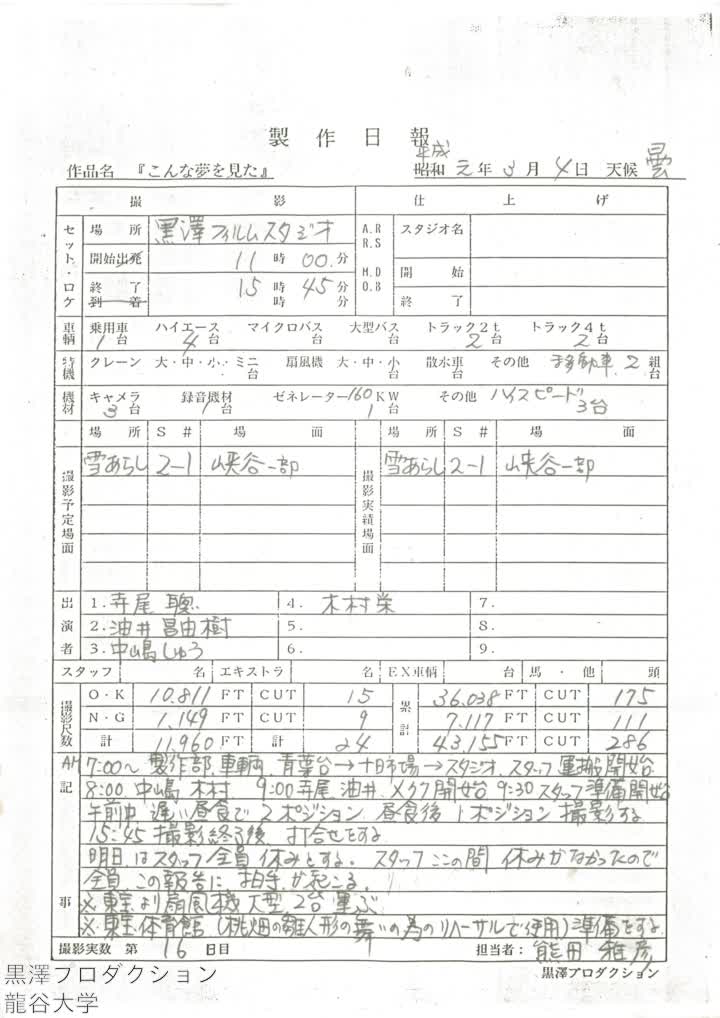 製作日報
作品名 『こんな夢を見た』 昭和 平成 元年 3月 4日 天候 曇
撮影 仕上げ
セット・ロケ 場所 黒澤フィルムスタジオ A.R R.S スタジオ名
開始出発 11時 00分
終了 15時 45分 M.D O.B 開始
到着 時 分 終了
車輌 乗用車 1台 ハイエース 4台 マイクロバス 台 大型バス 台 トラック2t 2台 トラック4t 2台
特機 クレーン 大・中・小・ミニ 台 扇風機 大・中・小 台 散水車 台 その他 移動車 2組台
機材 カメラ 3台 録音機材 1台 ゼネレーター160KW 1台 その他 ハイスピード 3台
場所 S# 場面 場所 S# 場面
撮影予定場面 雪あらし 2-1 峡谷一部 撮影実績場面 雪あらし 2-1 峡谷一部
出演者 1.寺尾聰 4.木村栄 7.
2.油井昌由樹 5. 8.
3.中嶋しゅう 6. 9.
スタッフ 名 エキストラ 名 EX車輌 台 馬・他 頭
撮影尺数 O・K 10.811 FT CUT 15 累計 36.038 FT CUT 175
N・G 1.149 FT CUT 9 7.117 FT CUT 111
計 11.960 FT 計 24 43.155 FT CUT 286
記事 AM 7:00〜 製作部、車輌、青葉台→十日市場→スタジオ、スタッフ運搬開始
8:00 中嶋 木村、9:00 寺尾 油井、メイク開始 9:30 スタッフ準備開始
午前中 遅い昼食で2ポジション 昼食後1ポジション 撮影する
15:45 撮影終了後、打合せをする
明日はスタッフ全員休みとする。スタッフここの間 休みがなかったので
全員、この報告に拍手が起こる。
※東宝より扇風機大型2台運ぶ
※東宝体育館(桃畑の雛人形の舞いの為のリハーサルで使用)準備をする
撮影実数 第16日目 担当者:熊田雅彦
黒澤プロダクション
黒澤プロダクション
龍谷大学